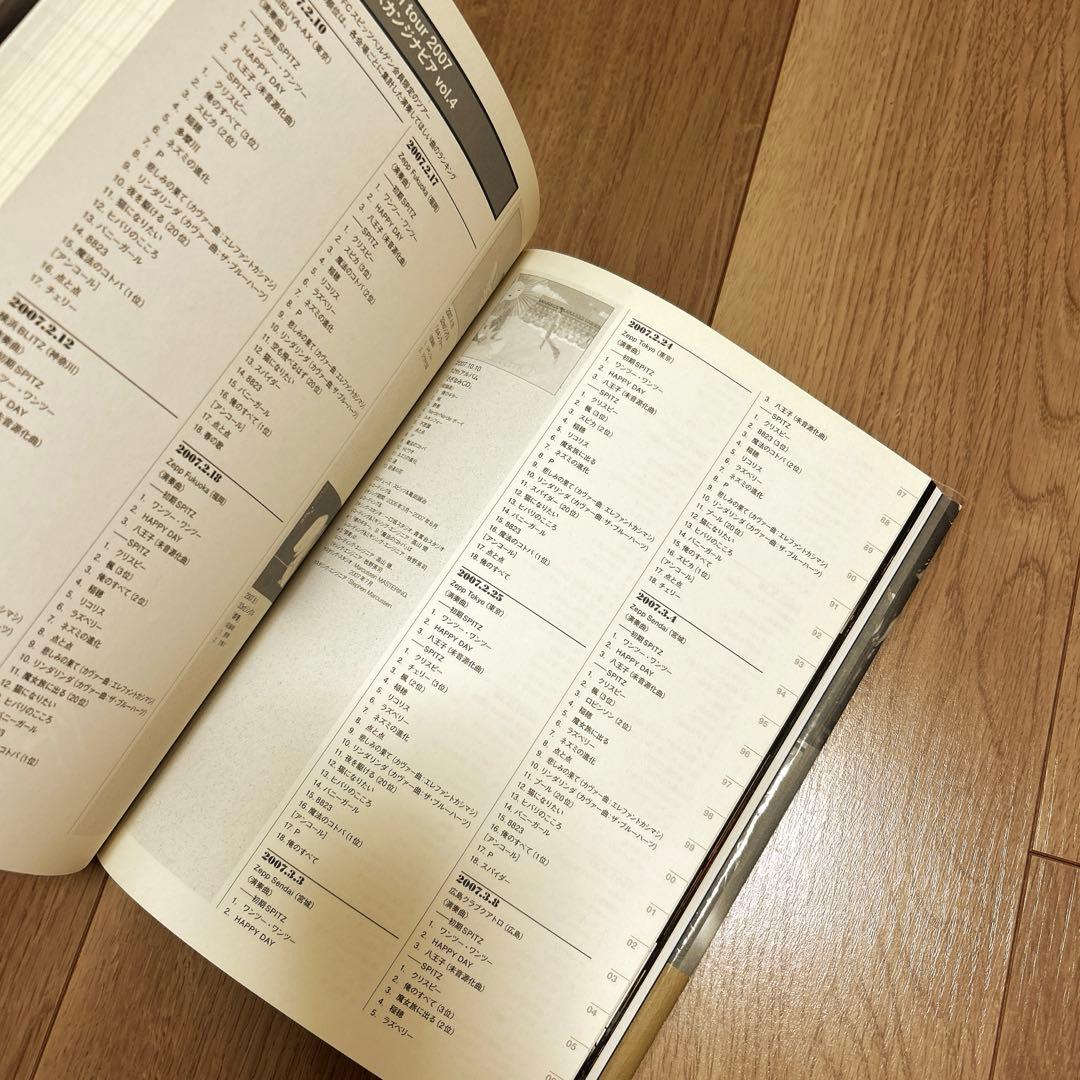 tour 2007
カンジナビア vol.4
FCスピッツベルゲン会員限定のツアー
各会場ごとに集計した演奏してほしい曲のランキング
2.10
BUYA-AX (東京)
(演奏曲)
──初期SPITZ
1. ワンツー・ワンツー
2. HAPPY DAY
3. 八王子 (未音源化曲)
──SPITZ
1. クリスピー
2. 俺のすべて (3位)
3. スピカ (2位)
4. 稲穂
5. 多摩川
6. ネズミの進化
7. P
8. 悲しみの果て (カヴァー曲:エレファントカシマシ)
9. リンダリンダ (カヴァー曲:ザ・ブルーハーツ)
10. 夜を駆ける (20位)
11. 猫になりたい
12. ヒバリのこころ
13. バニーガール
14. 8823
15. 魔法のコトバ (1位)
[アンコール]
16. 点と点
17. チェリー
2007.2.12
横浜 BLITZ (神奈川)
初期SPITZ
ワンツー・ワンツー
2007.2.17
Zepp Fukuoka (福岡)
(演奏曲)
──初期SPITZ
1. ワンツー・ワンツー
2. HAPPY DAY
3. 八王子 (未音源化曲)
──SPITZ
1. クリスピー
2. スピカ (3位)
3. 魔法のコトバ (2位)
4. 稲穂
5. リコリス
6. ラズベリー
7. ネズミの進化
8. P
9. 悲しみの果て (カヴァー曲:エレファントカシマシ)
10. リンダリンダ (カヴァー曲:ザ・ブルーハーツ)
11. 空も飛べるはず (20位)
12. 猫になりたい
13. スパイダー
14. 8823
15. バニーガール
16. 俺のすべて (1位)
[アンコール]
17. 点と点
18. 春の歌
2007.2.18
Zepp Fukuoka (福岡)
(演奏曲)
──初期SPITZ
1. ワンツー・ワンツー
2. HAPPY DAY
3. 八王子 (未音源化曲)
──SPITZ
1. クリスピー
2. 楓 (3位)
3. 俺のすべて (2位)
4. 稲穂
5. リコリス
6. ラズベリー
7. ネズミの進化
8. 点と点
9. 悲しみの果て (カヴァー曲:エレファントカシマシ)
10. リンダリンダ (カヴァー曲:ザ・ブルーハーツ)
11. 魔女旅に出る (20位)
12. 猫になりたい
ヒバリのこころ
コトバ (1位)
2007.10.10
12thアルバム
Stephen Marcussen
2007.2.24
Zepp Tokyo (東京)
(演奏曲)
──初期SPITZ
1. ワンツー・ワンツー
2. HAPPY DAY
3. 八王子 (未音源化曲)
──SPITZ
1. クリスピー
2. 楓 (3位)
3. スピカ (2位)
4. 稲穂
5. リコリス
6. 魔女旅に出る
7. ネズミの進化
8. P
9. 悲しみの果て (カヴァー曲:エレファントカシマシ)
10. リンダリンダ (カヴァー曲:ザ・ブルーハーツ)
11. スパイダー (20位)
12. 猫になりたい
13. ヒバリのこころ
14. バニーガール
15. 8823
16. 魔法のコトバ (1位)
[アンコール]
17. 点と点
18. 俺のすべて
2007.2.25
Zepp Tokyo (東京)
(演奏曲)
──初期SPITZ
1. ワンツー・ワンツー
2. HAPPY DAY
3. 八王子 (未音源化曲)
──SPITZ
1. クリスピー
2. チェリー (3位)
3. 楓 (2位)
4. 稲穂
5. リコリス
6. ラズベリー
7. ネズミの進化
8. 点と点
9. 悲しみの果て (カヴァー曲:エレファントカシマシ)
10. リンダリンダ (カヴァー曲:ザ・ブルーハーツ)
11. 夜を駆ける (20位)
12. 猫になりたい
13. ヒバリのこころ
14. バニーガール
15. 8823
16. 魔法のコトバ (1位)
[アンコール]
17. P
18. 俺のすべて
2007.3.3
Zepp Sendai (宮城)
(演奏曲)
──初期SPITZ
1. ワンツー・ワンツー
2. HAPPY DAY
3. 八王子 (未音源化曲)
──SPITZ
1. クリスピー
2. 8823 (3位)
3. 魔法のコトバ (2位)
4. 稲穂
5. リコリス
6. ラズベリー
7. ネズミの進化
8. P
9. 悲しみの果て (カヴァー曲:エレファントカシマシ)
10. リンダリンダ (カヴァー曲:ザ・ブルーハーツ)
11. プール (20位)
12. 猫になりたい
13. ヒバリのこころ
14. バニーガール
15. 俺のすべて
16. スピカ (1位)
[アンコール]
17. 点と点
18. チェリー
2007.3.4
Zepp Sendai (宮城)
(演奏曲)
──初期SPITZ
1. ワンツー・ワンツー
2. HAPPY DAY
3. 八王子 (未音源化曲)
──SPITZ
1. クリスピー
2. 楓 (3位)
3. ロビンソン (2位)
4. 稲穂
5. 魔女旅に出る
6. ラズベリー
7. ネズミの進化
8. 点と点
9. 悲しみの果て (カヴァー曲:エレファントカシマシ)
10. リンダリンダ (カヴァー曲:ザ・ブルーハーツ)
11. プール (20位)
12. 猫になりたい
13. ヒバリのこころ
14. バニーガール
15. 8823
16. 俺のすべて (1位)
[アンコール]
17. P
18. スパイダー
2007.3.8
広島クラブクアトロ (広島)
(演奏曲)
──初期SPITZ
1. ワンツー・ワンツー
2. HAPPY DAY
3. 八王子 (未音源化曲)
──SPITZ
1. クリスピー
2. 俺のすべて (3位)
3. 魔女旅に出る (2位)
4. 稲穂
5. ラズベリー
87
88
89
90
91
92
93
94
95
96
97
98
99
00
01
02
03
04
05